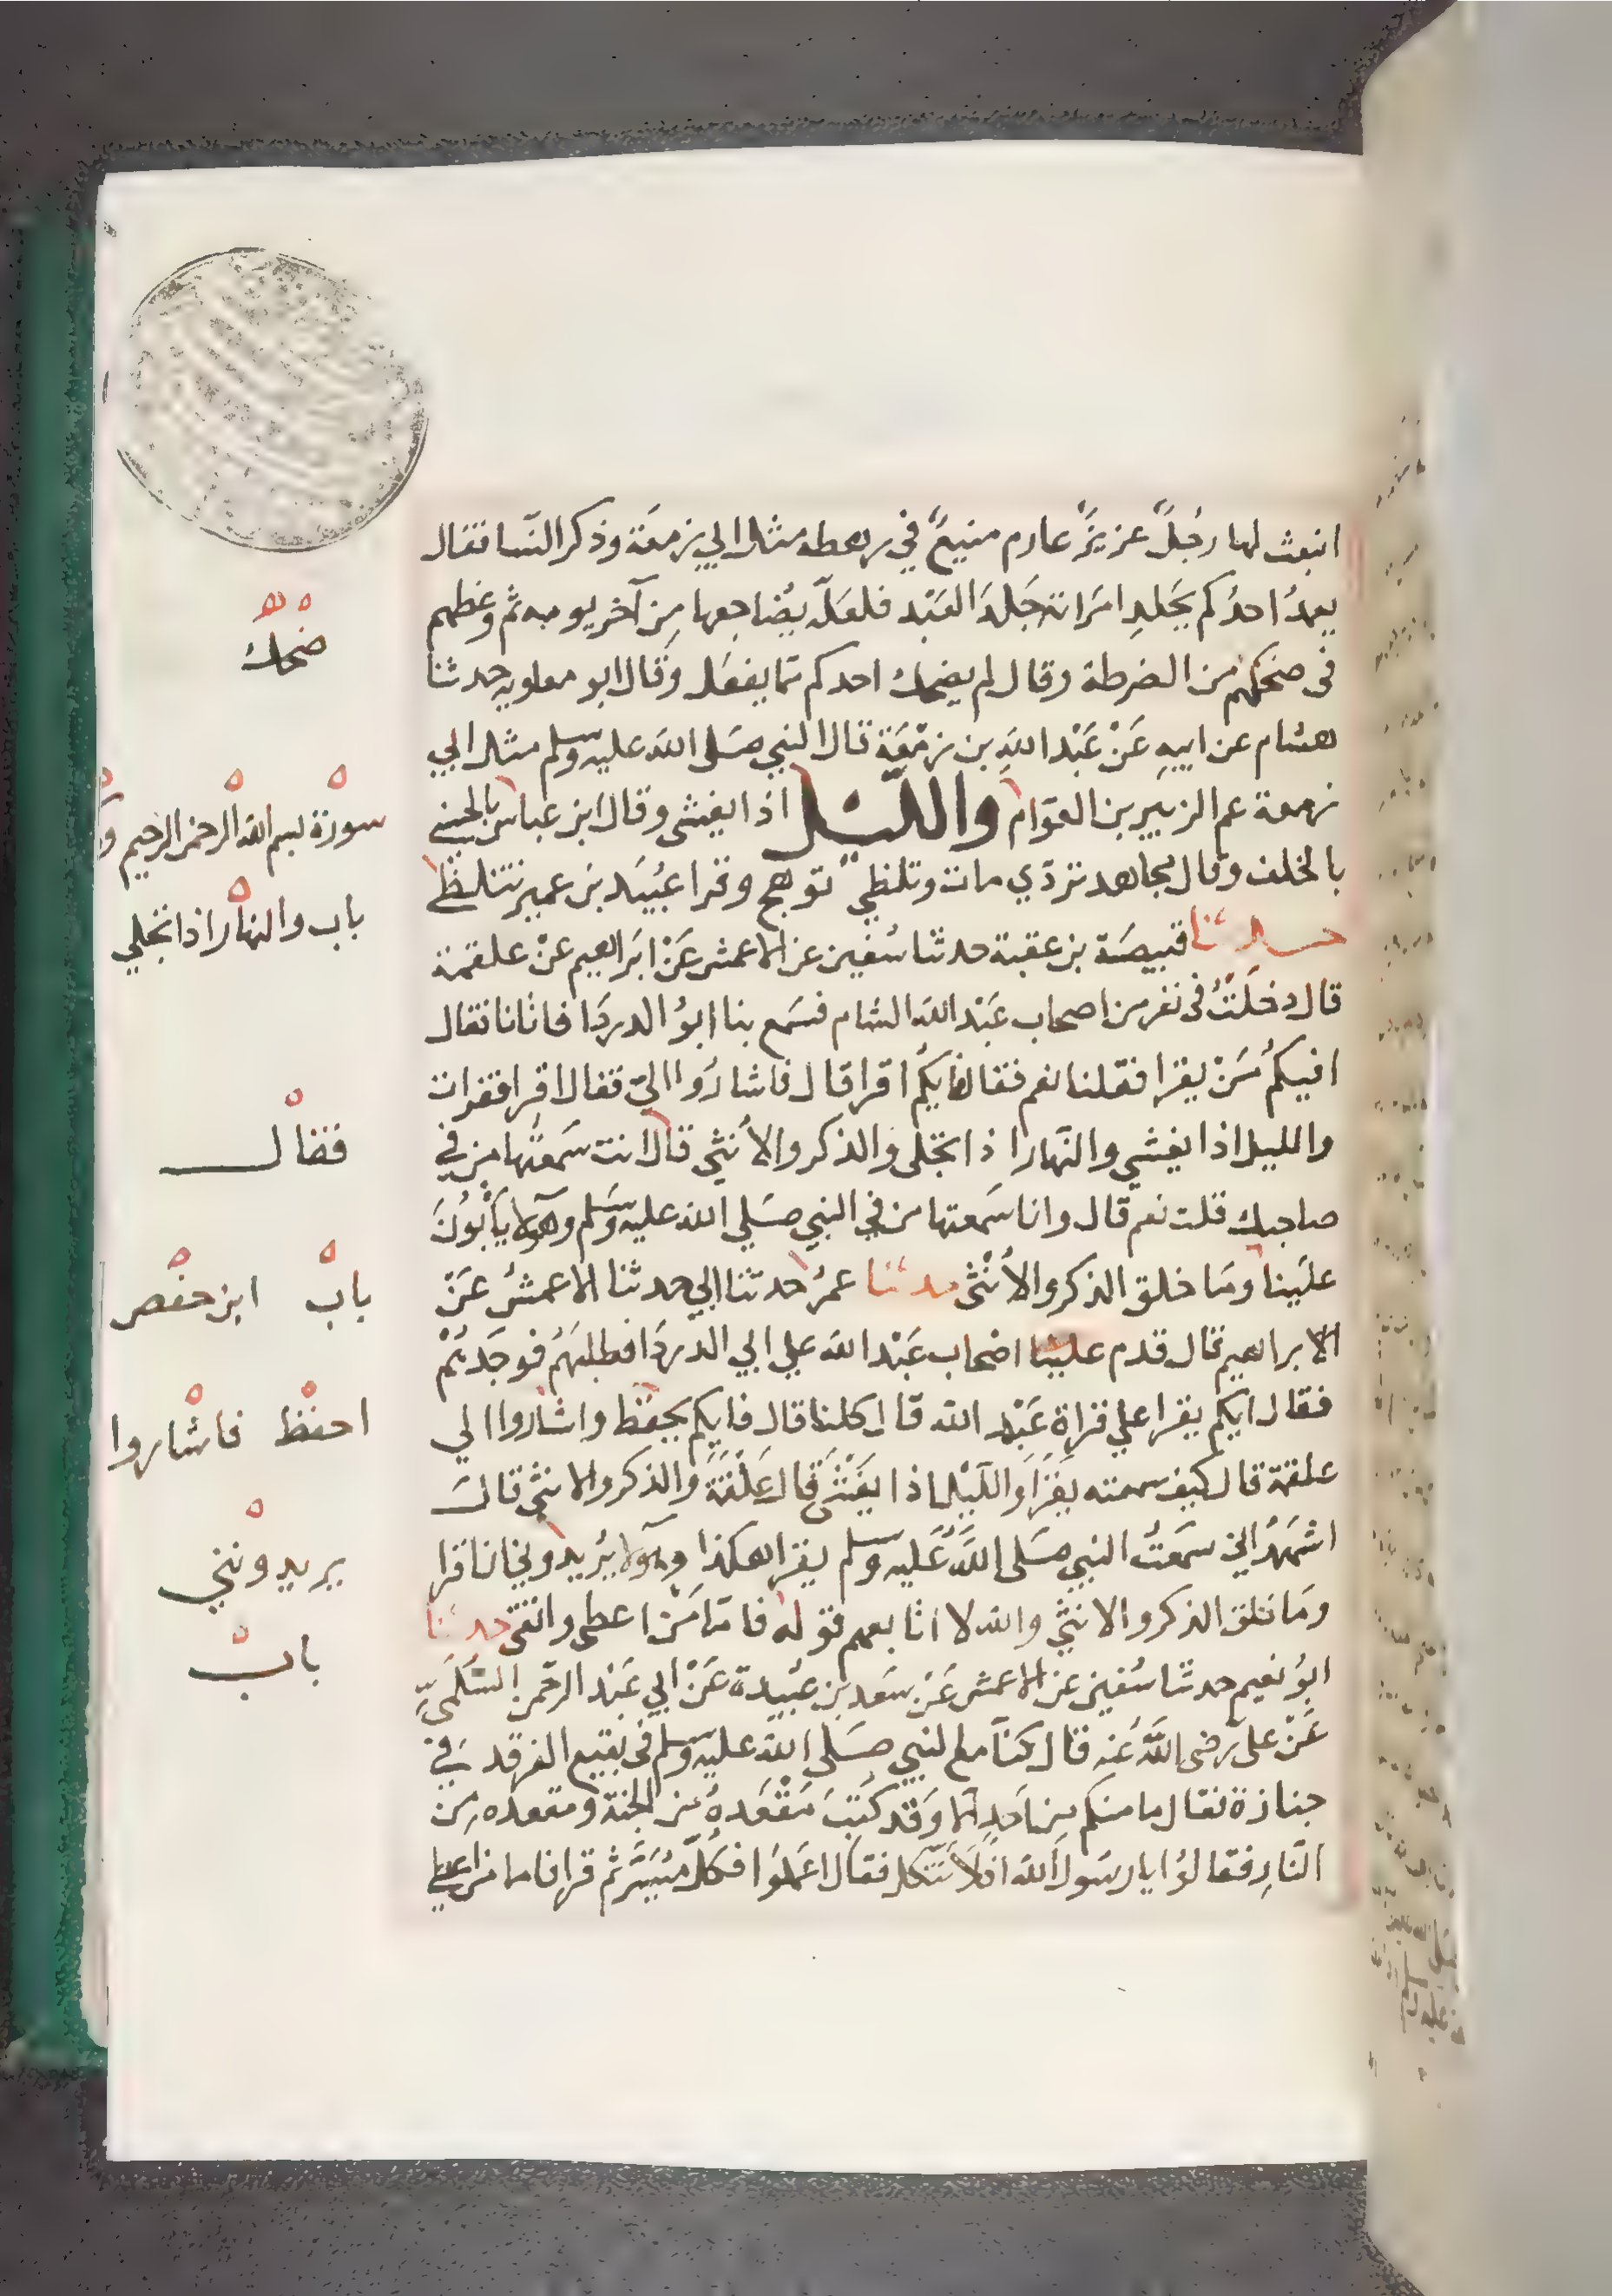 انبعث لها رجُلٌ عزيزٌ عارم منيعٌ في رهطه مثل ابي زمعَة وذكر النّسا فقال
يعمدُ احدُكم يَجلدِ امرَاته جَلدَ العَبْد فلعَلّه يُضاجعها مِن آخر يومه ثم وعظهم
فى ضحكهم من الضرطة وقال لم يضحك احدكم مما يفعَل وقال ابو معاويه حدثنا
هشام عن ابيهِ عَنْ عَبْد اللهِ بن زمْعَة قال النبي صَلى الله عليه وسلم مثل ابي
زمعة عم الزبير بن العوّام والليل اذا يغشى وقال ابن عباس بالحسنى
بالخلف وقال مجاهد تردّي مات وتلظي توهج وقرا عُبيَد بن عمير تتلظى
حدثنا قبيصَة بن عقبة حدثنا سُفين عن الاعمش عَنْ ابرَاهيم عنْ علقمة
قال دخلَتُ فى نفر من اصحاب عَبْد الله الشام فسَمع بنا ابوُ الدردَا فاتانا فقال
افيكُم مَنْ يقرا فقلنا نعم فقال فايكُم اقرا قال فاشارُوا اليّ فقال اقرا فقرات
والليل اذا يغشي والنّهار اذا تجلى والذكر والأنثى قال انت سَمعتَها من في
صاحبك قلت نعم قال وانا سَمعتها من في النبي صَلي الله عليه وسَلم وهولا يأبَونَ
علَينا ومَا خلق الذكر والأنْثى حدثنا عمرُ حدثنا ابي حدثنا الاعمشُ عَنْ
ابراهيم قال قدم علينا اصحاب عَبْد الله علي ابي الدردَا فطلبَهُم فوجَدَهُمْ
فقال ايكم يقرا علي قراة عَبْد الله قال كلنا قال فايكم يحفظ واشاروا الي
علقمة قال كيف سمعته يقرَا وَاللّيْل اذا يَغْشَى قال عَلقَمَة والذكر والانثي قال
اشهَدُ اني سَمعتُ النبي صَلى اللَّهُ عَليه وسَلم يقرا هكذا وهولا يُريدوني ان اقرا
ومَا خلق الذكر والانثي والله لا اتابعهم قوله فامّا مَنْ اعطى واتقى حدثنا
ابوُ نعيم حدثنا سُفين عن الاعمش عَنْ سَعد بن عُبيدة عَنْ ابي عَبْد الرحمن السُّلَميّ
عَنْ على رضى اللَّهُ عَنه قال كنّا مع النبي صَلى الله عليه وسلم فى بقيع الغرقد في
جنازة فقال ما منكم مِن اَحَد الا وَقد كتبَ مَقْعَدهُ من الجنة ومقعده من
النّارِ فقالوُا يا رسَول الله افلاَ نتّكل فقال اعمَلوُا فكلّ مُيَسَّر ثم قرا فاما من اعطى
ضحك
سورة بسم الله الرحمن الرحيم
باب والنهار اذا تجلي
فقال
باب ابن حفص
احفظ فاشاروا
يريدونني
باب